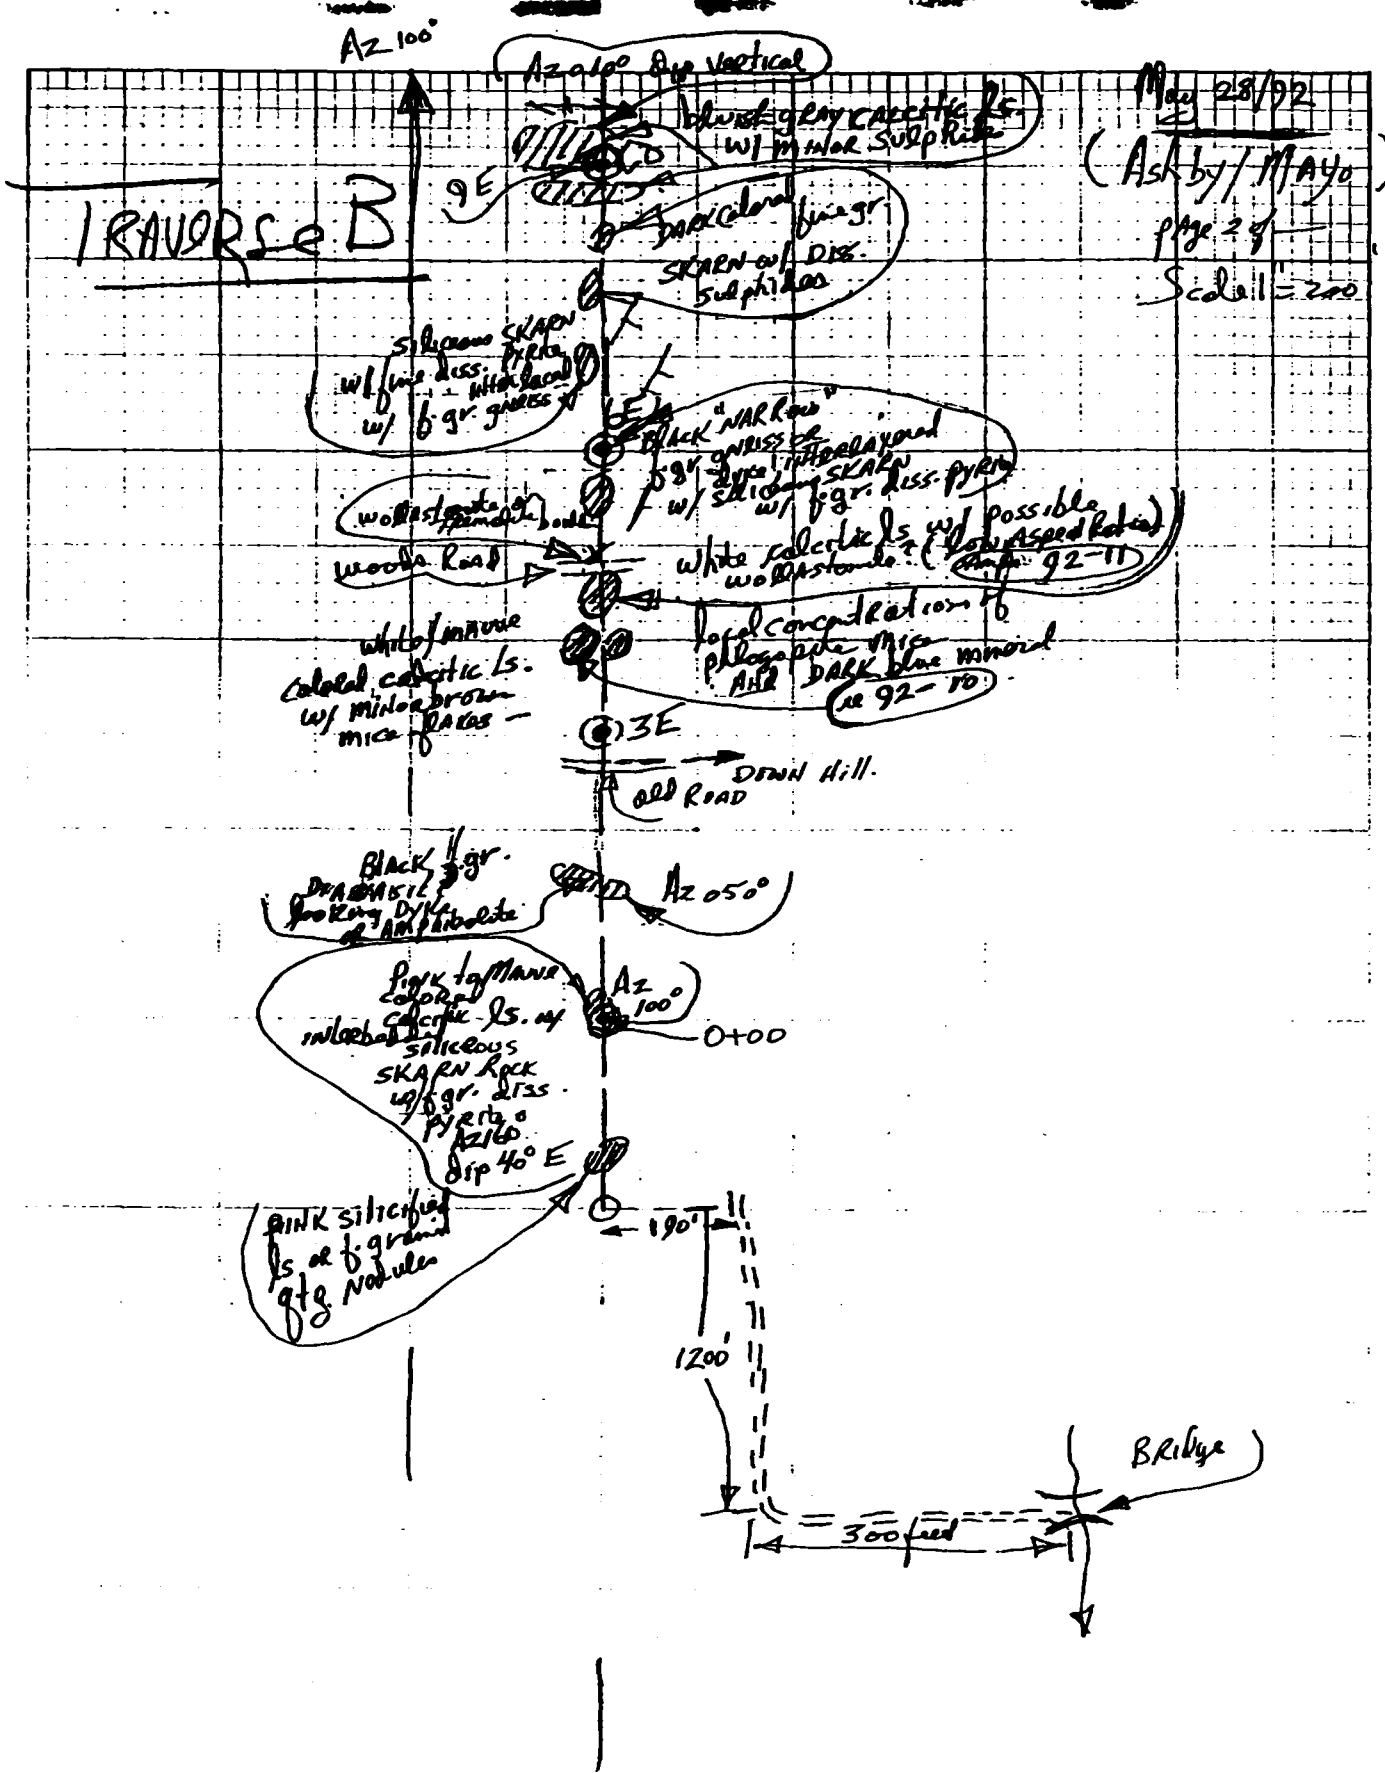 Az 100°
Az 010° Dip vertical
May 28/92
(Ashby/Mayo)
page 2 of
Scale 1" = 200
TRAVERSE B
bluish gray calcitic ls.
w/ minor sulphide
9E
DARK colored fine gr.
SKARN w/ DISS.
sulphides
siliceous SKARN
w/ fine diss. pyrite
interlaced
w/ f. gr. gneiss
6E
BLACK "NARROW"
f. gr. gneiss or
dyke interlayered
w/ siliceous SKARN
w/ f. gr. diss. pyrite
wollastonite or
tremolite
woods Road
white calcitic ls w/ possible
wollastonite? (low Aspect Ratio)
92-11
white/mauve
colored calcitic ls.
w/ minor brown
mica flakes
local concentrations of
phlogopite mica
And DARK blue mineral
ie 92-10
3E
DOWN Hill.
old ROAD
BLACK f. gr.
looking DYKE
or AMPHIBOLITE
Az 050°
Pink to Mauve
colored
calcitic ls. w/
interbedded
siliceous
SKARN Rock
w/ f. gr. diss.
pyrite
Az 160°
dip 40° E
Az
100°
0+00
PINK silicified
ls or f. grained
qtz. Nodules
190'
1200'
Bridge
300 feet